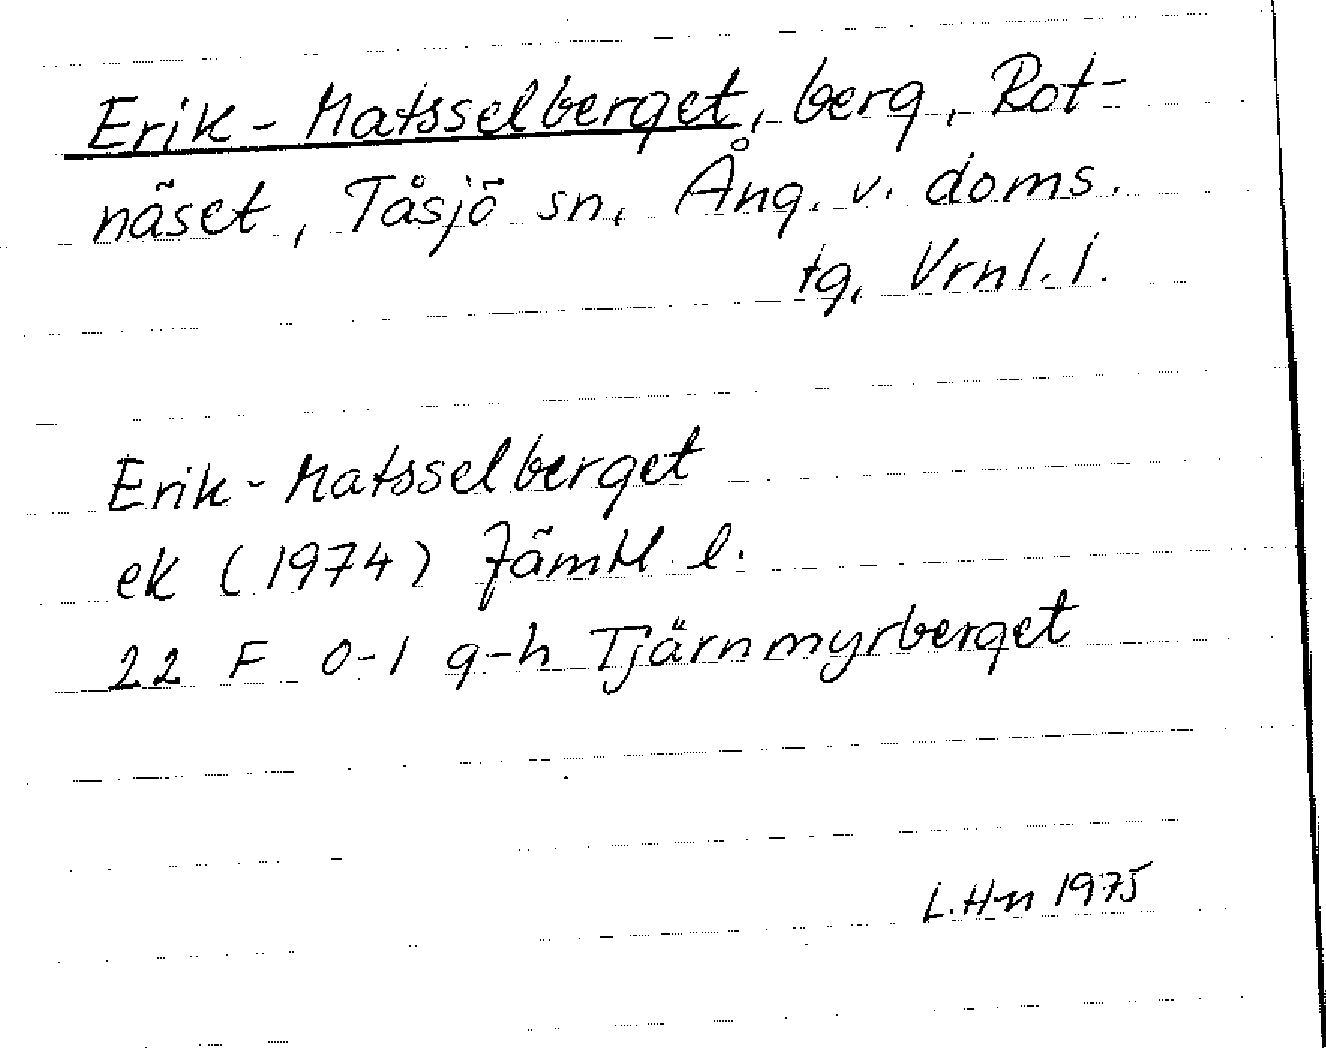 Erik-Matsselberget, berg, Rot-
näset, Tåsjö sn, Ång. v. doms.
tg, Vrnl. l.
Erik-Matsselberget
ek (1974) Jämtl l.
22 F 0-1 g-h Tjärnmyrberget
L.H-n 1975